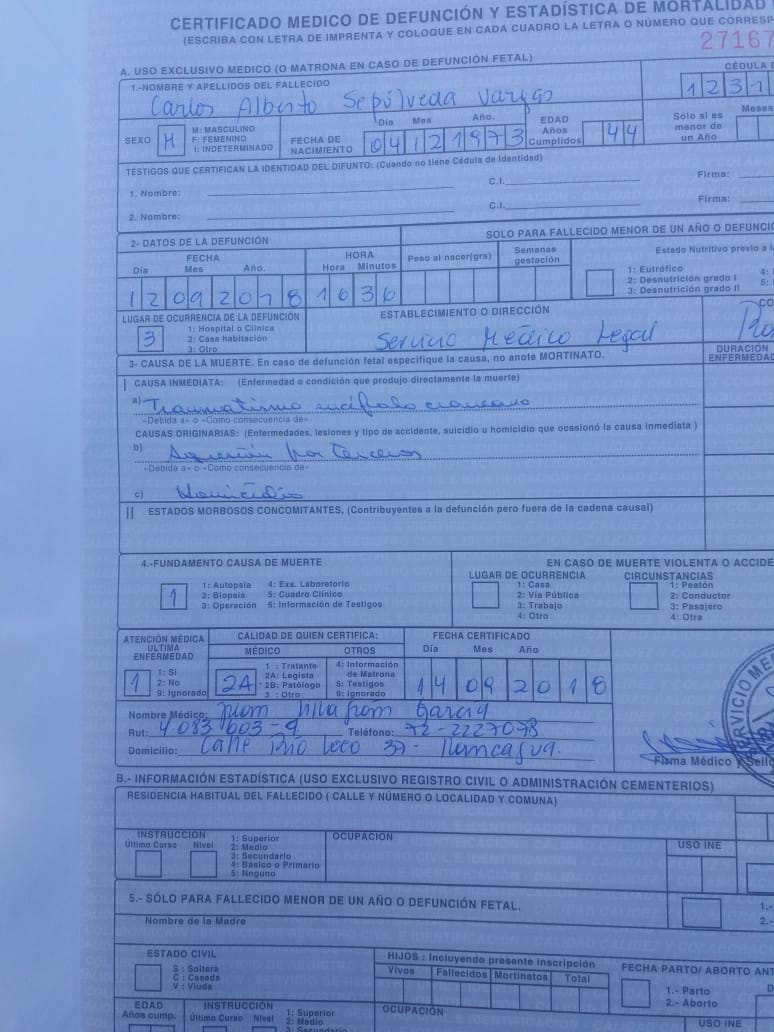 CERTIFICADO MEDICO DE DEFUNCIÓN Y ESTADÍSTICA DE MORTALIDAD
(ESCRIBA CON LETRA DE IMPRENTA Y COLOQUE EN CADA CUADRO LA LETRA O NÚMERO QUE CORRESP
27167
A. USO EXCLUSIVO MEDICO (O MATRONA EN CASO DE DEFUNCIÓN FETAL)
1.-NOMBRE Y APELLIDOS DEL FALLECIDO
CÉDULA D
Carlos Alberto Sepúlveda Vargas
1 2 3
SEXO H M: MASCULINO F: FEMENINO I: INDETERMINADO
FECHA DE NACIMIENTO Día Mes Año. 0 4 1 2 1 9 7 3
EDAD Años Cumplidos 44
Sólo si es menor de un Año Meses
TESTIGOS QUE CERTIFICAN LA IDENTIDAD DEL DIFUNTO: (Cuando no tiene Cédula de Identidad)
1. Nombre: C.I. Firma:
2. Nombre: C.I. Firma:
2- DATOS DE LA DEFUNCIÓN
SOLO PARA FALLECIDO MENOR DE UN AÑO O DEFUNCI
FECHA Día Mes Año. 1 2 0 9 2 0 1 8
HORA Hora Minutos 1 6 3 6
Peso al nacer(grs) Semanas gestación
Estado Nutritivo previo a l
1: Eutrófico 4:
2: Desnutrición grado I 5:
3: Desnutrición grado II
LUGAR DE OCURRENCIA DE LA DEFUNCIÓN
3 1: Hospital o Clínica
2: Casa habitación
3: Otro
ESTABLECIMIENTO O DIRECCIÓN
Servicio Médico Legal
CO
3- CAUSA DE LA MUERTE. En caso de defunción fetal especifique la causa, no anote MORTINATO.
DURACIÓN ENFERMEDAD
I CAUSA INMEDIATA: (Enfermedad o condición que produjo directamente la muerte)
a) Traumatismo encéfalo craneano
«Debida a» o «Como consecuencia de»
CAUSAS ORIGINARIAS: (Enfermedades, lesiones y tipo de accidente, suicidio u homicidio que ocasionó la causa inmediata )
b) Agresión por terceros
«Debida a» o «Como consecuencia de»
c) Homicidio
II ESTADOS MORBOSOS CONCOMITANTES, (Contribuyentes a la defunción pero fuera de la cadena causal)
4.-FUNDAMENTO CAUSA DE MUERTE
1 1: Autopsia 4: Exs. Laboratorio
2: Biopsia 5: Cuadro Clínico
3: Operación 6: Información de Testigos
EN CASO DE MUERTE VIOLENTA O ACCIDE
LUGAR DE OCURRENCIA
1: Casa
2: Vía Pública
3: Trabajo
4: Otro
CIRCUNSTANCIAS
1: Peatón
2: Conductor
3: Pasajero
4: Otra
ATENCIÓN MÉDICA ULTIMA ENFERMEDAD
1 1: Si
2: No
9: Ignorado
CALIDAD DE QUIEN CERTIFICA:
MÉDICO OTROS
2A 1 : Tratante
2A: Legista
2B: Patólogo
3 : Otro
4: Información de Matrona
5: Testigos
9: Ignorado
FECHA CERTIFICADO
Día Mes Año
1 4 09 2 0 1 8
Nombre Médico: García
Rut: 4083 603-9 Teléfono: 72-2227078
Domicilio: Calle Río Loco 37-
SERVICIO ME
Firma Médico y Sello
B.- INFORMACIÓN ESTADÍSTICA (USO EXCLUSIVO REGISTRO CIVIL O ADMINISTRACIÓN CEMENTERIOS)
RESIDENCIA HABITUAL DEL FALLECIDO ( CALLE Y NÚMERO O LOCALIDAD Y COMUNA)
INSTRUCCIÓN
Último Curso Nivel
1: Superior
2: Medio
3: Secundario
4: Básico o Primario
5: Ninguno
OCUPACIÓN
USO INE
5.- SÓLO PARA FALLECIDO MENOR DE UN AÑO O DEFUNCIÓN FETAL.
1.-
2.-
Nombre de la Madre
ESTADO CIVIL
S : Soltera
C : Casada
V : Viuda
HIJOS : Incluyendo presente inscripción
Vivos Fallecidos Mortinatos Total
FECHA PARTO/ ABORTO ANT
1.- Parto
2.- Aborto
EDAD Años cump.
INSTRUCCIÓN
Último Curso Nivel
1: Superior
2: Medio
3: Secundario
OCUPACIÓN
USO INE